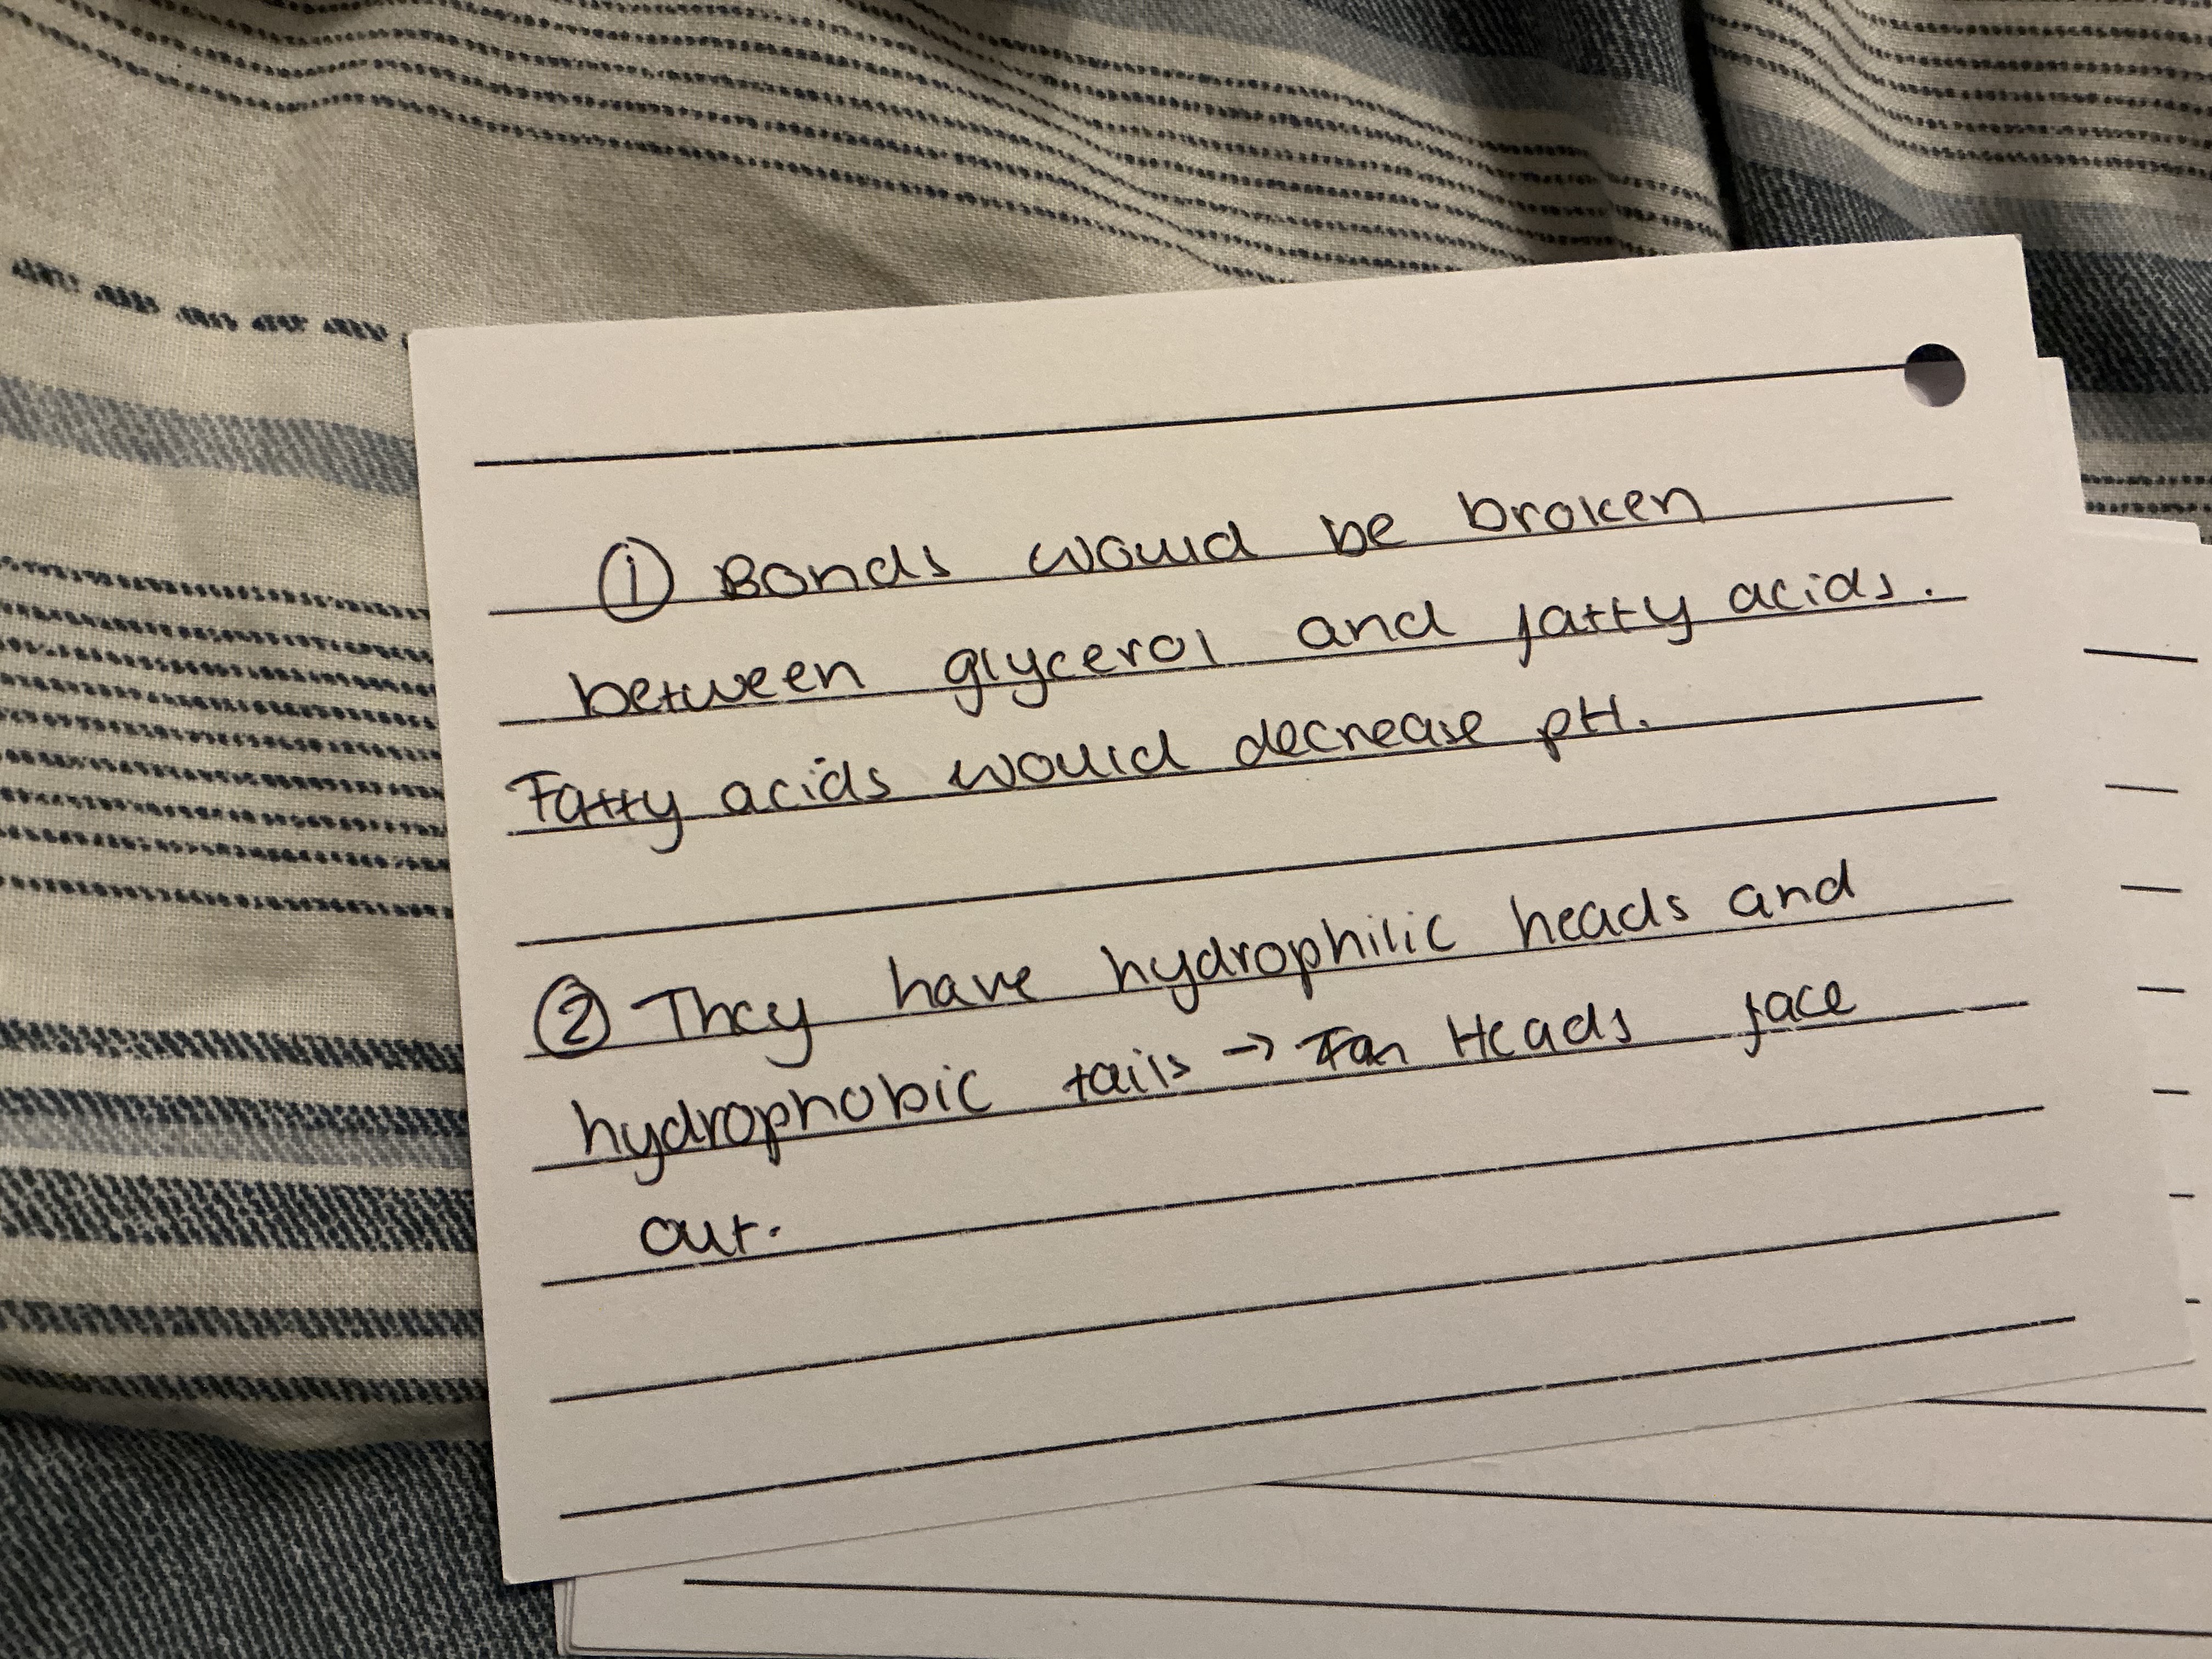 ① Bonds would be broken
between glycerol and fatty acids.
Fatty acids would decrease pH.
② They have hydrophilic heads and
hydrophobic tails → Heads face
out.